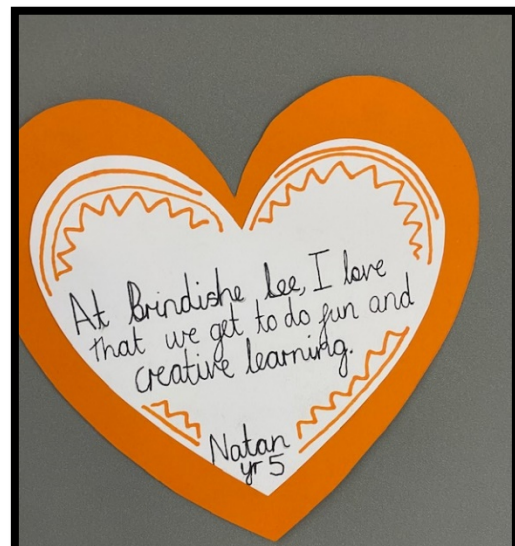 At Brindishe Lee, I love
that we get to do fun and
creative learning.
Natan
yr 5